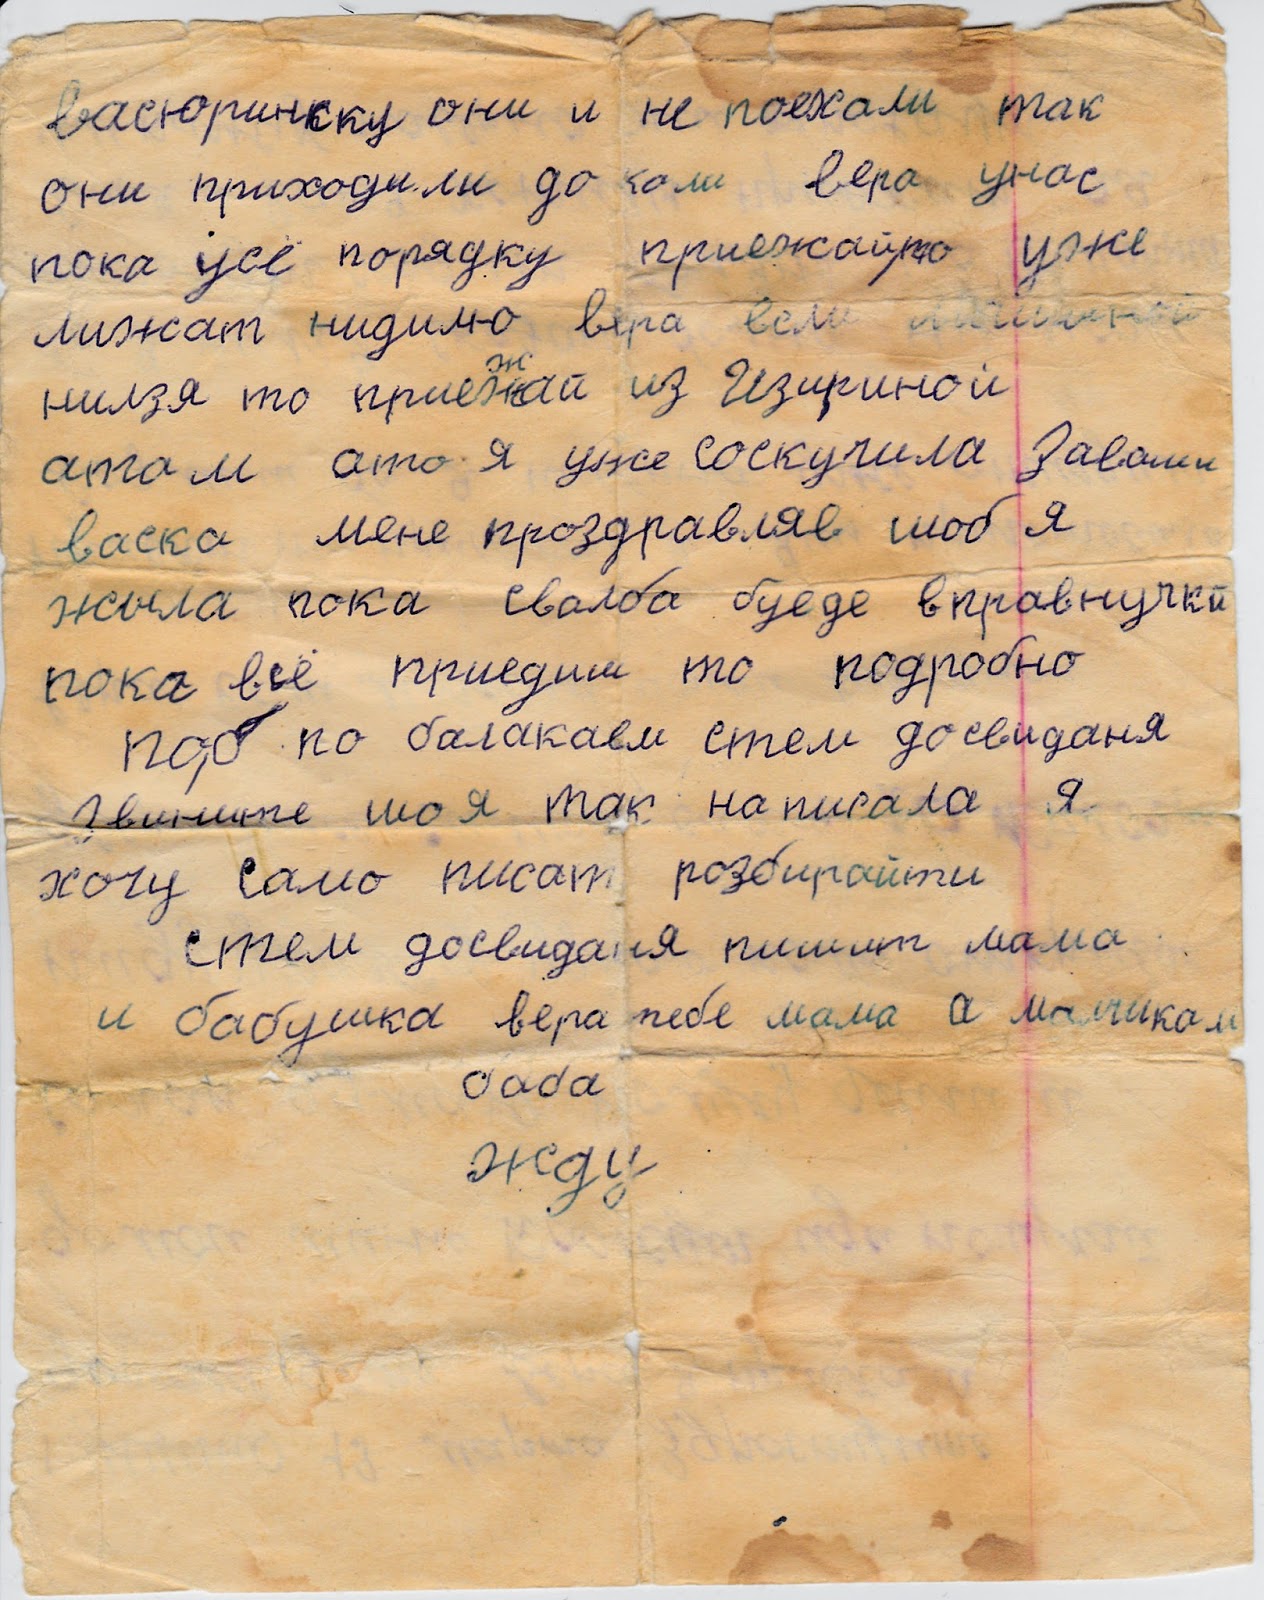 васюринкску они и не поехали так
они приходили до коли вера унас
пока усё порядку приежайто уже
лижат нидилю вера если
нилзя то приежжай из Изириной
атам ато я уже соскучила Завами
васка мене проздравляв шоб я
жыла пока свалба буеде вправнучкй
пока всё приедиш то подробно
поб по балакаем стем досвиданя
Звините шоя так написала я
хочу само писат розбирайти
стем досвиданя пишит мама
и бабушка вера тебе мама а малчикам
баба
жду